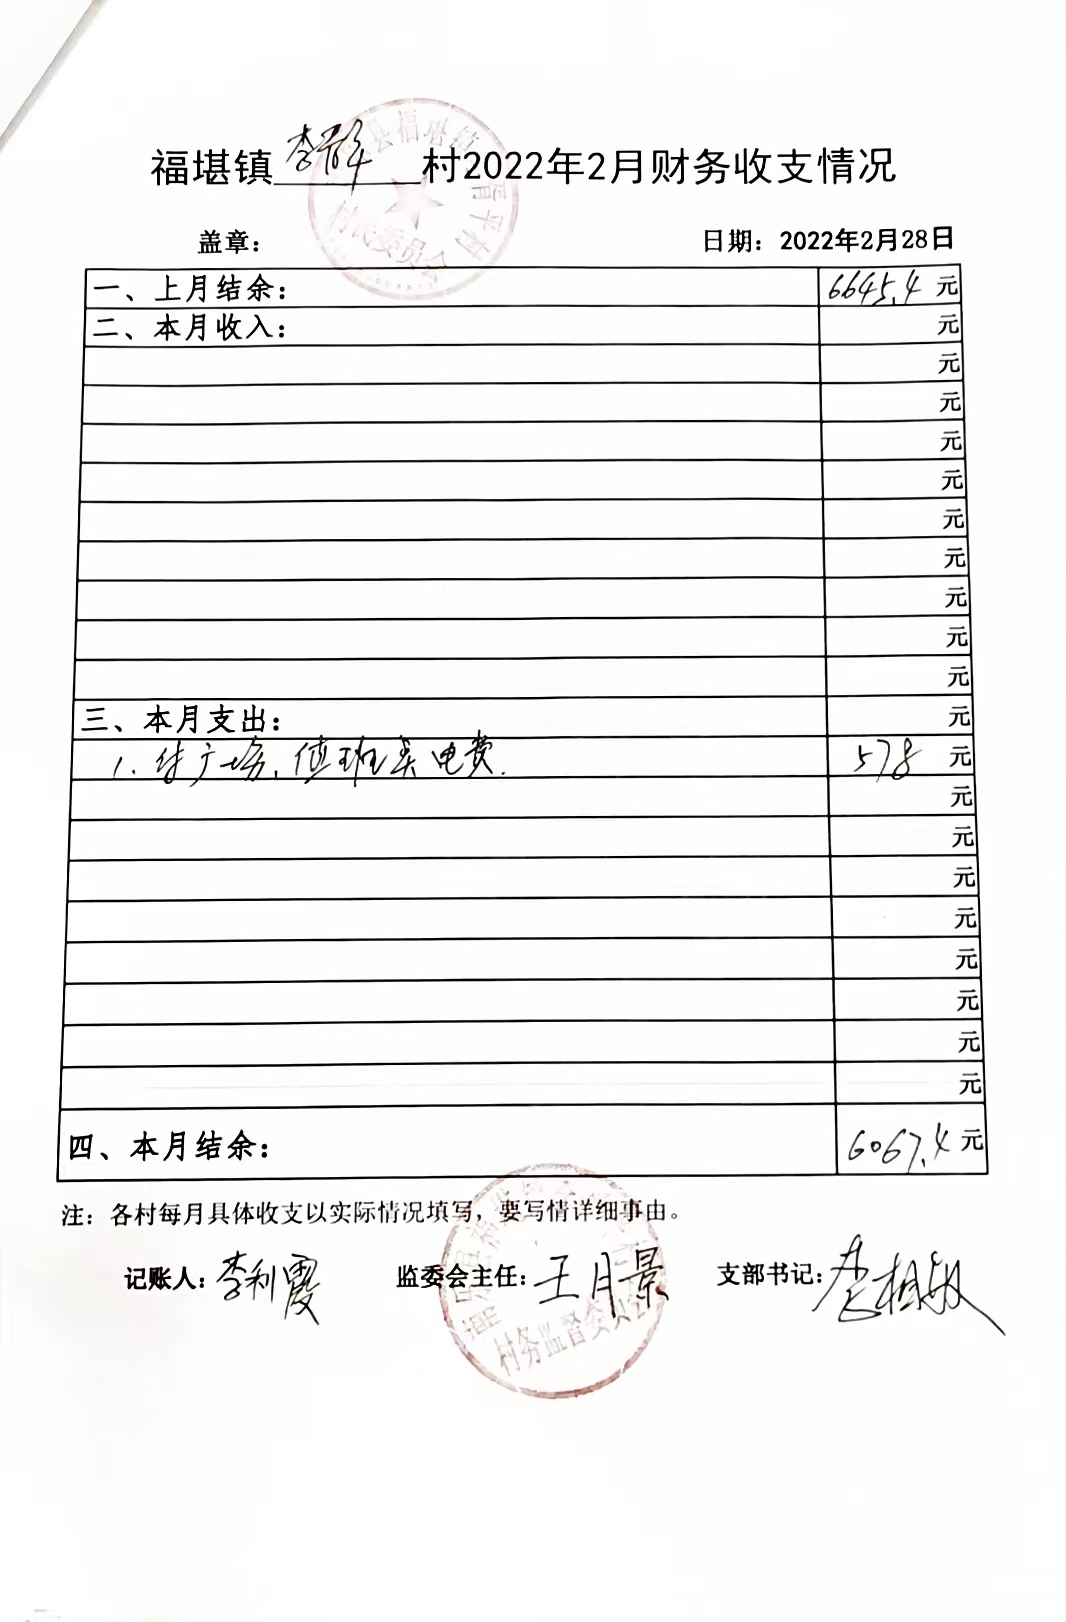 福堪镇李胥平村2022年2月财务收支情况
县福堪镇 胥平村
村民委员会
盖章： 日期：2022年2月28日
一、上月结余： 6645.4元
二、本月收入： 元
元
元
元
元
元
元
元
元
元
三、本月支出： 元
1. 付广场、值班室电费. 578元
元
元
元
元
元
元
元
元
四、本月结余： 6067.4元
注：各村每月具体收支以实际情况填写，要写情详细事由。
记账人：李利霞 监委会主任：王月景 支部书记：李相敏
村务监督委员会